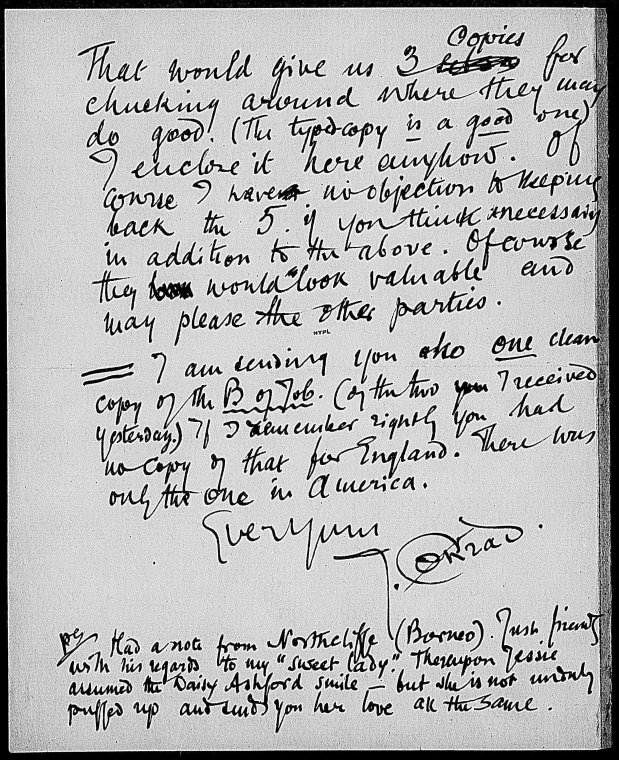 That would give us 3 Copies for
chucking around where they may
do good. (The typed copy is a good one)
I enclose it here anyhow. Of
course I have no objection to keeping
back the 5. if you think necessary
in addition to the above. Of course
they would "look valuable" and
may please the other parties.
NYPL
I am sending you also one clean
copy of the B of Job. (of the two I received
yesterday.) If I remember rightly you had
no copy of that for England. There was
only the one in America.
Ever yours
J. Conrad.
PS Had a note from Northcliffe (Borneo). Just friendly
with his regards to my "sweet lady". Thereupon Jessie
assumed the Daisy Ashford smile – but she is not unduly
puffed up and sends you her love all the same.